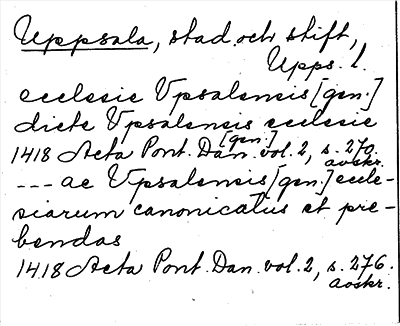 Uppsala, stad och stift,
Upps. l.
ecclesie Vpsalensis [gen.]
dicte Vpsalensis ecclesie
[gen.]
1418 Acta Pont. Dan. vol. 2, s. 270.
avskr.
--- ac Vpsalensis [gen.] eccle-
siarum canonicatus et pre-
bendas
1418 Acta Pont. Dan. vol. 2, s. 276.
avskr.